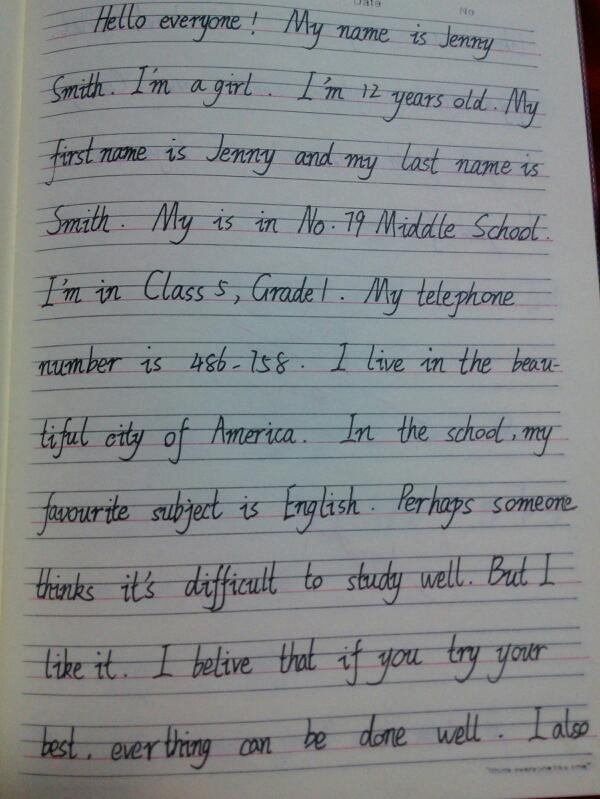 Date
No
Hello everyone! My name is Jenny
Smith. I'm a girl. I'm 12 years old. My
first name is Jenny and my last name is
Smith. My is in No. 79 Middle School.
I'm in Class 5, Grade 1. My telephone
number is 486-758. I live in the beau-
tiful city of America. In the school, my
favourite subject is English. Perhaps someone
thinks it's difficult to study well. But I
like it. I belive that if you try your
best, everthing can be done well. I also